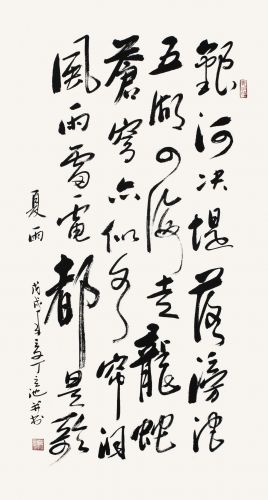 銀河决堤落滂沱
五湖四海走龍蛇
蒼穹亦似水帘洞
風雨雷電都是歌
夏雨
戊戌年